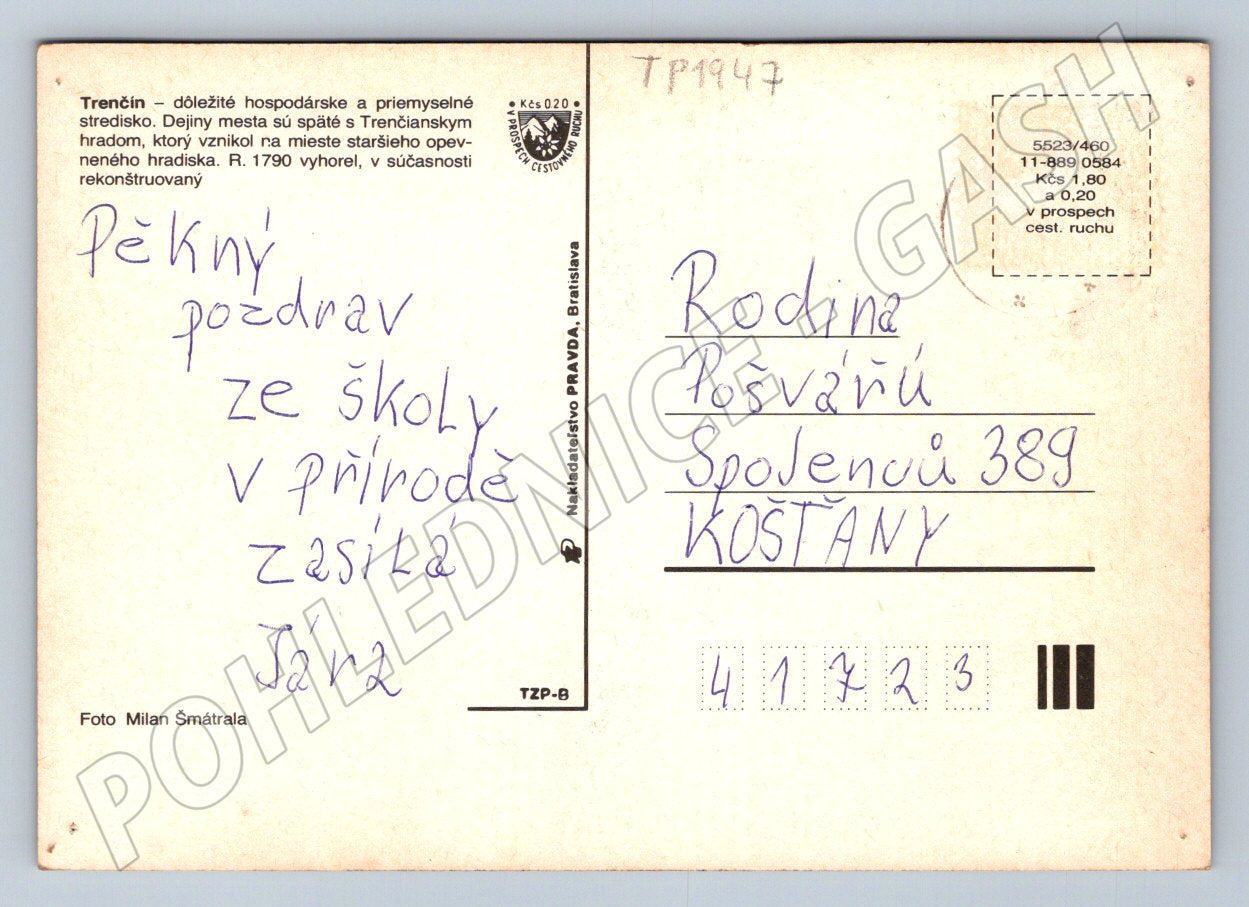 TP1947
Trenčín – dôležité hospodárske a priemyselné
stredisko. Dejiny mesta sú späté s Trenčianskym
hradom, ktorý vznikol na mieste staršieho opev-
neného hradiska. R. 1790 vyhorel, v súčasnosti
rekonštruovaný
• Kčs 0.20 •
V PROSPECH CESTOVNÉHO RUCHU
Pěkný
pozdrav
ze školy
v přírodě
zasílá
Šárz
Foto Milan Šmátrala
TZP-B
Nakladateľstvo PRAVDA, Bratislava
5523/460
11-889 0584
Kčs 1,80
a 0,20
v prospech
cest. ruchu
Rodina
Pošvářů
Spojenců 389
KOŠŤANY
41723
POHLEDNICE - GASH